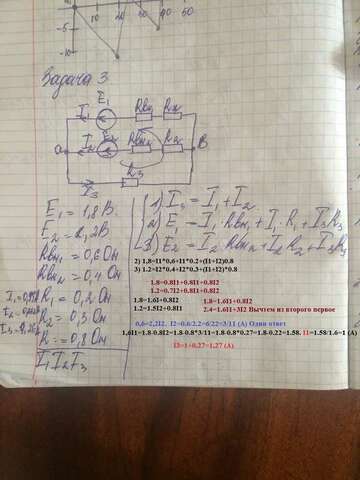 0
10
20
30
40
50
-5
-10
Задача 3
E1 Rвн1 R1
I1
I2 E2 Rвн2 R2
a B
R3
I3
E1 = 1,8 В.
E2 = 1,2 В
Rвн1 = 0,6 Ом
Rвн2 = 0,4 Ом
R1 = 0,2 Ом
R2 = 0,3 Ом
R = 0,8 Ом
I1 I2 I3
1) I3 = I1 + I2
2) E1 = I1·Rвн1 + I1·R1 + I3R3
3) E2 = I2 Rвн2 + I2 R2 + I3R3
2) 1.8=I1*0.6+I1*0.2+(I1+I2)0.8
3) 1.2=I2*0.4+I2*0.3+(I1+I2)*0.8
1.8=0.8I1+0.8I1+0.8I2
1.2=0.7I2+0.8I1+0.8I2
1.8=1.6I+0.8I2 1.8=1.6I1+0.8I2
1.2=1.5I2+0.8I1 2.4=1.6I1+3I2 Вычтем из второго первое
0,6=2,2I2. I2=0.6/2.2=6/22=3/11 (А) Один ответ
1,6I1=1.8-0.8I2=1.8-0.8*3/11=1.8-0.8*0.27=1.8-0.22=1.58. I1=1.58/1.6=1 (А)
I3=1+0.27=1.27 (А)